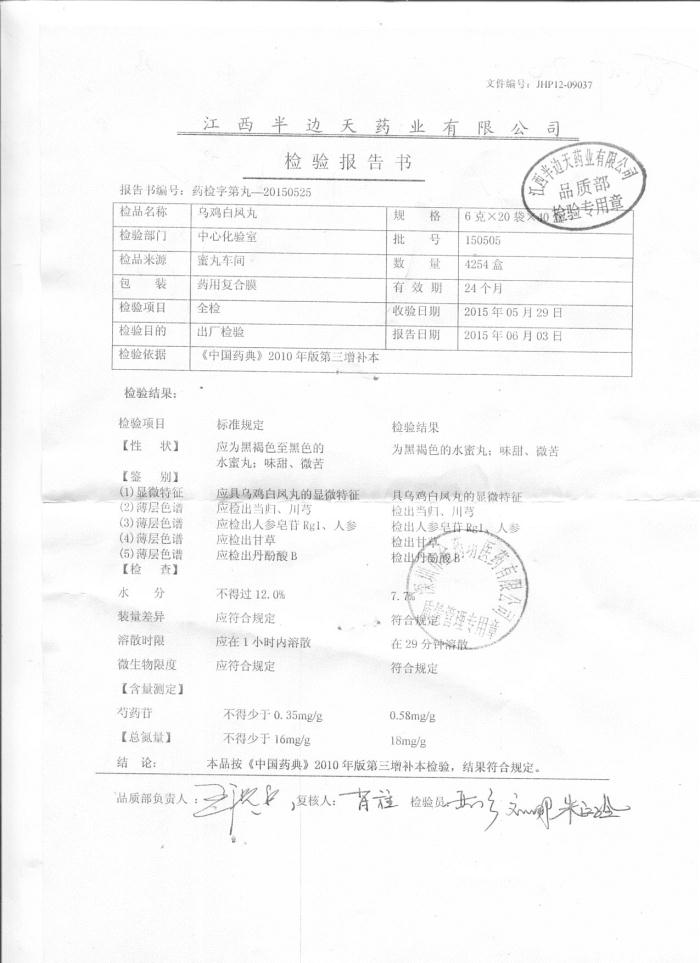 文件编号：JHP12-09037
江西半边天药业有限公司
检验报告书
江西半边天药业有限公司
品质部
检验专用章
报告书编号：药检字第丸—20150525
检品名称 乌鸡白凤丸 规 格 6克×20袋×40
检验部门 中心化验室 批 号 150505
检品来源 蜜丸车间 数 量 4254盒
包 装 药用复合膜 有 效 期 24个月
检验项目 全检 收验日期 2015年05月29日
检验目的 出厂检验 报告日期 2015年06月03日
检验依据 《中国药典》2010年版第三增补本
检验结果：
检验项目 标准规定 检验结果
【性 状】 应为黑褐色至黑色的 为黑褐色的水蜜丸；味甜、微苦
水蜜丸；味甜、微苦
【鉴 别】
(1)显微特征 应具乌鸡白凤丸的显微特征 具乌鸡白凤丸的显微特征
(2)薄层色谱 应检出当归、川芎 检出当归、川芎
(3)薄层色谱 应检出人参皂苷Rg1、人参 检出人参皂苷Rg1、人参
(4)薄层色谱 应检出甘草 检出甘草
(5)薄层色谱 应检出丹酚酸B 检出丹酚酸B
【检 查】
水 分 不得过12.0% 7.7%
装量差异 应符合规定 符合规定
溶散时限 应在1小时内溶散 在29分钟溶散
微生物限度 应符合规定 符合规定
医药有限公司
质量管理专用章
【含量测定】
芍药苷 不得少于0.35mg/g 0.58mg/g
【总氮量】 不得少于16mg/g 18mg/g
结 论： 本品按《中国药典》2010年版第三增补本检验，结果符合规定。
品质部负责人： 复核人： 检验员